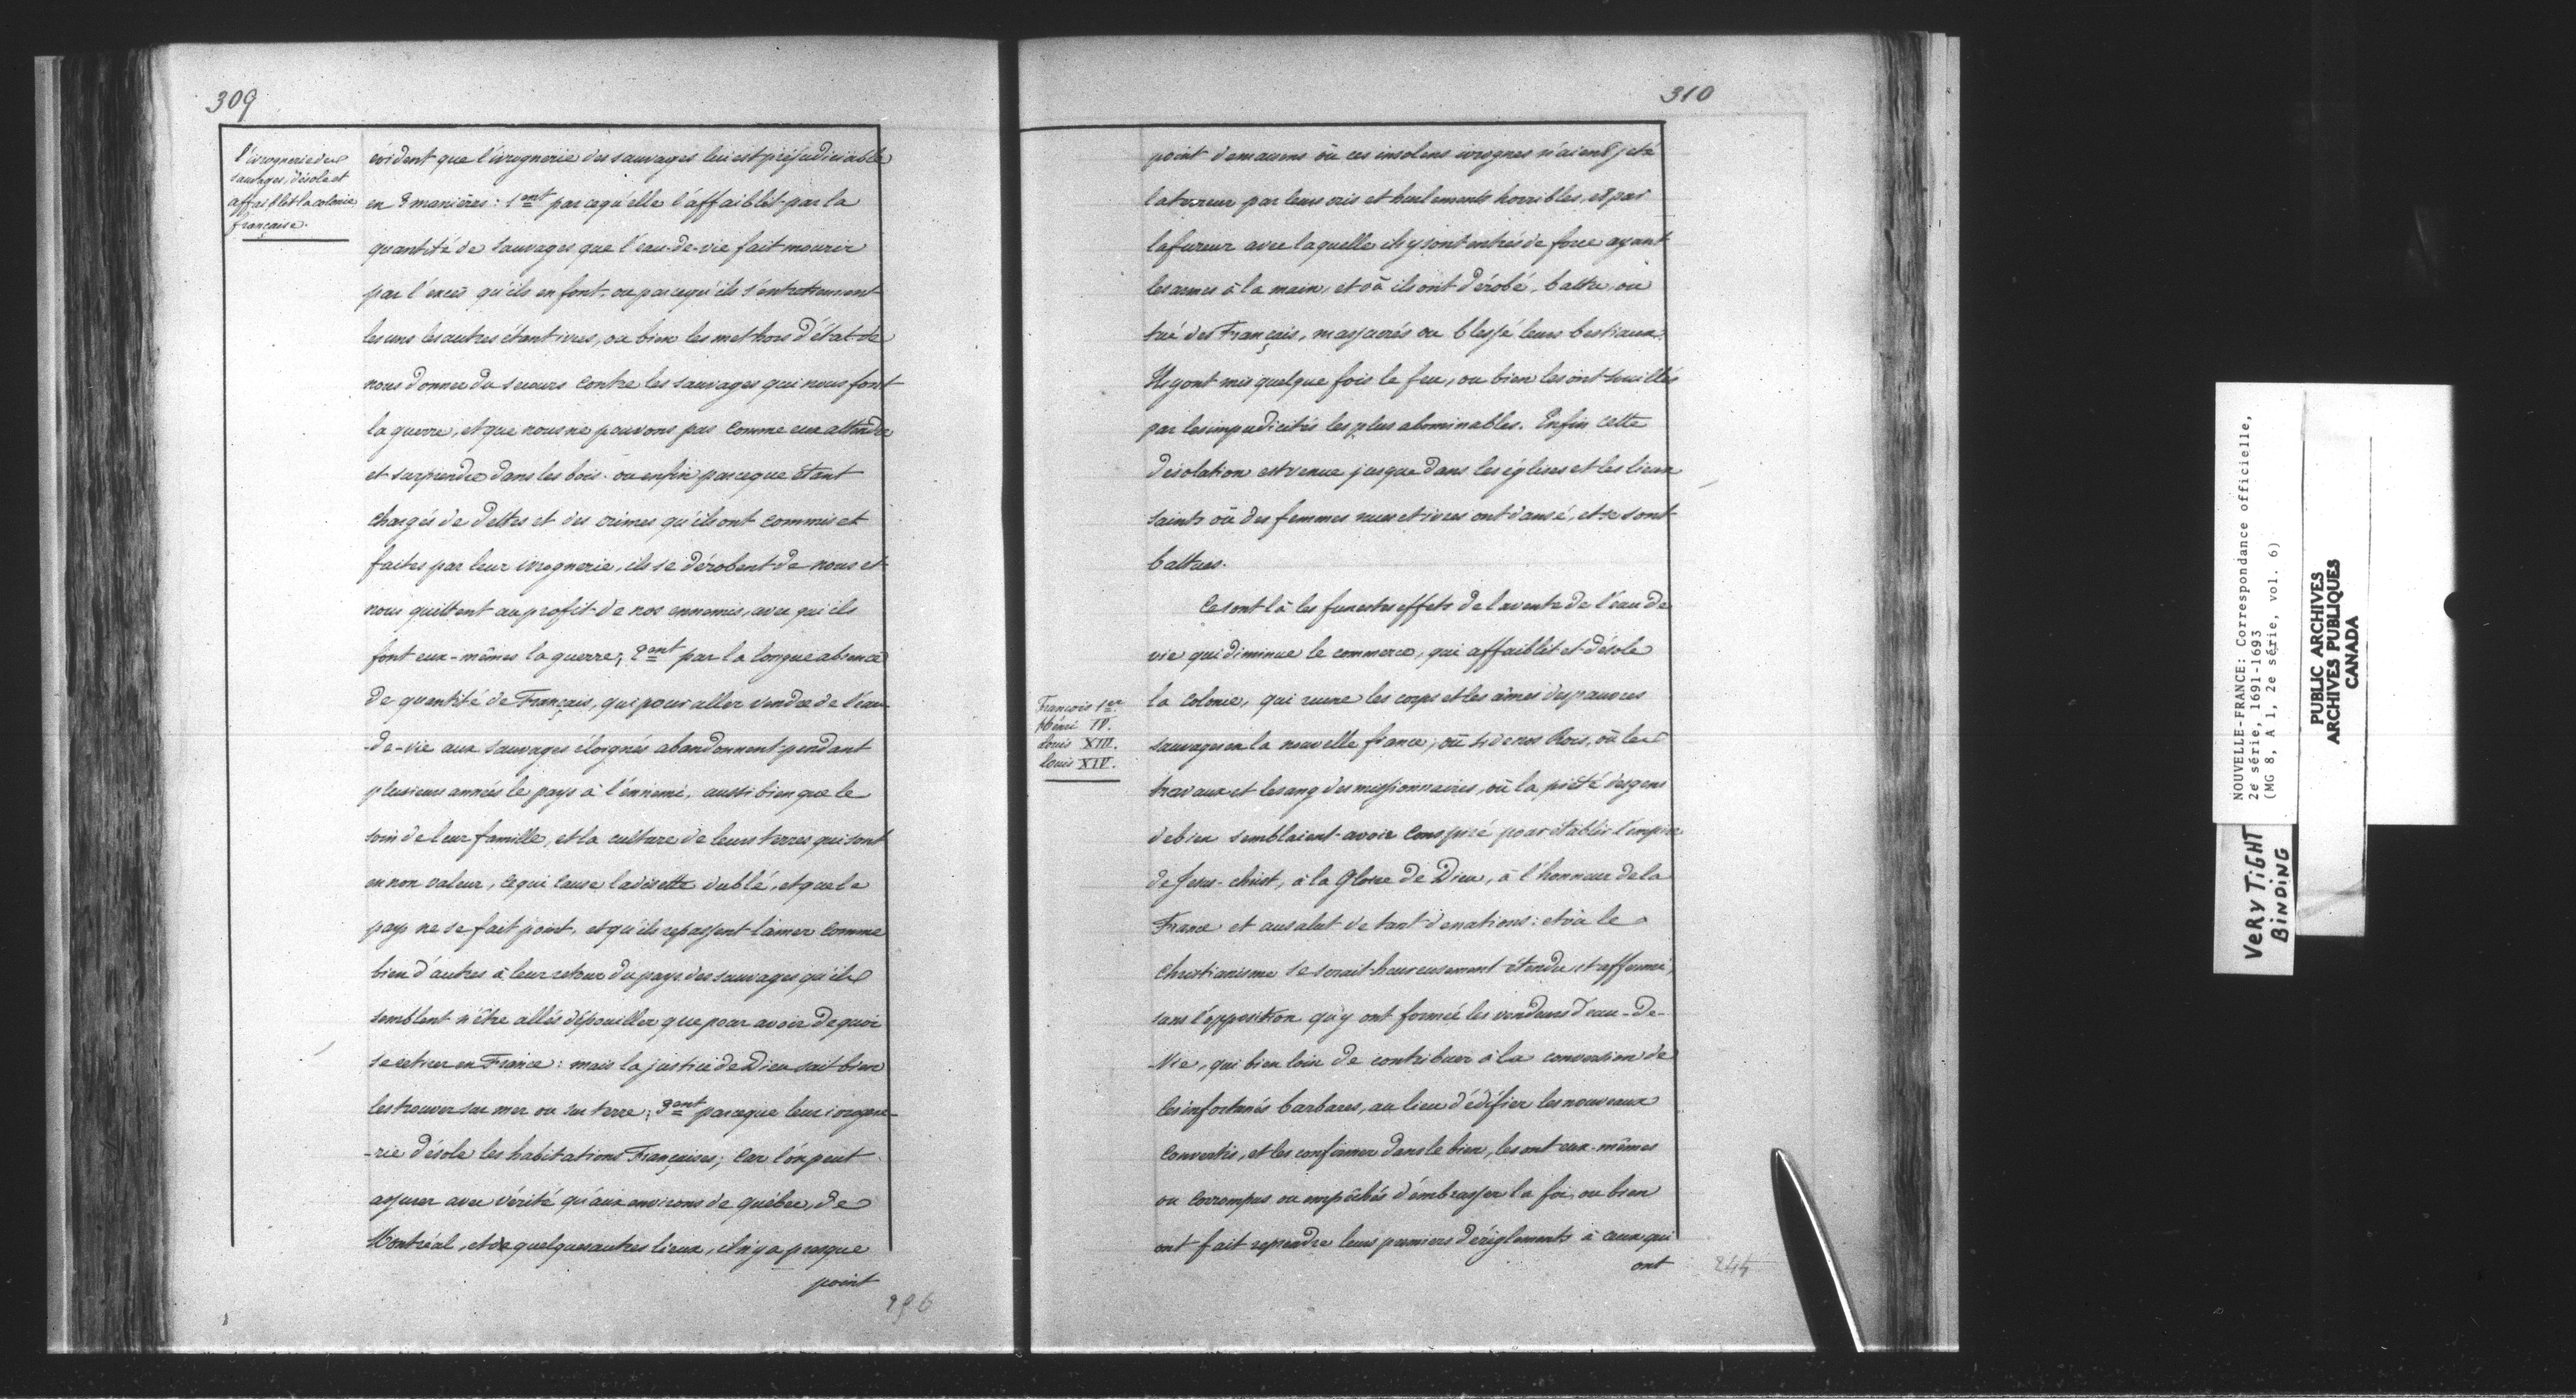 309
l'ivrognerie des
sauvages, désole et
affaiblit la colonie
française.
évident que l'ivrognerie des sauvages lui est préjudiciable
en 3 manières: 1ent parcequ'elle l'affaiblit par la
quantité de sauvages que l'eau-de-vie fait mourir
par l'excès qu'ils en font, ou parcequ'ils s'entretuent
les uns les autres étant ivres, ou bien les met hors d'état de
nous donner du secours contre les sauvages qui nous font
la guerre, et que nous ne pouvons pas comme eux attendre
et surprendre dans les bois. ou enfin parceque étant
chargés de dettes et des crimes qu'ils ont commis et
faites par leur ivrognerie, ils se dérobent de nous et
nous quittent au profit de nos ennemis, avec qui ils
font eux-mêmes la guerre; 2ent par la longue absence
de quantité de Français, qui pour aller vendre de l'eau
-de-vie aux sauvages éloignés abandonnent pendant
plusieurs années le pays à l'ennemi, aussi bien que le
soin de leur famille, et la culture de leurs terres qui sont
en non valeur, ce qui cause la disette du blé, et que le
pays ne se fait point, et qu'ils repassent la mer comme
bien d'autres à leur retour du pays des sauvages qu'ils
semblent n'être allés dépouiller que pour avoir de quoi
se retirer en France: mais la justice de Dieu sait bien
les trouver sur mer ou sur terre; 3ent parceque leur ivrogne-
-rie désole les habitations Françaises; car l'on peut
assurer avec vérité qu'aux environs de québec, de
Montréal, et de quelques autres lieux, il n'y a presque
point
296
310
point de maisons où ces insolens ivrognes n'aient jeté
la terreur par leurs cris et hurlements horribles, et par
la fureur avec laquelle ils y sont entrés de force ayant
les armes à la main, et où ils ont dérobé, battu, ou
tué des Français, massacrés ou blessé leurs bestiaux.
Ils y ont mis quelque fois le feu, ou bien les ont souillés
par les impudicités les plus abominables. Enfin cette
désolation est venue jusque dans les églises et les lieux
saints où des femmes nues et ivres ont dansé, et se sont
battues.
Ce sont là les funestes effets de la vente de l'eau de
vie qui diminue le commerce, qui affaiblit et désole
François 1er
Henri IV.
Louis XIII.
Louis XIV.
la colonie, qui ruine les corps et les âmes des pauvres
sauvages en la nouvelle france; où 4 de nos Rois, où les
travaux et le sang des missionnaires, où la piété des gens
de bien semblaient avoir conspiré pour établir l'empire
de Jesus-christ, à la Gloire de Dieu, à l'honneur de la
France et au salut de tant de nations: et où le
christianisme se serait heureusement étendu et affermi,
sans l'opposition qu'y ont formée les vendeurs d'eau-de-
-vie, qui bien loin de contribuer à la conversion de
ces infortunés barbares, au lieu d'édifier les nouveaux
convertis, et les confirmer dans le bien, les ont eux-mêmes
ou corrompus ou empêchés d'embrasser la foi, ou bien
ont fait reprendre leurs premiers déréglements à ceux qui
ont
244
NOUVELLE-FRANCE: Correspondance officielle,
2e série, 1691-1693
(MG 8, A 1, 2e série, vol. 6)
VERY TIGHT
BINDING
PUBLIC ARCHIVES
ARCHIVES PUBLIQUES
CANADA